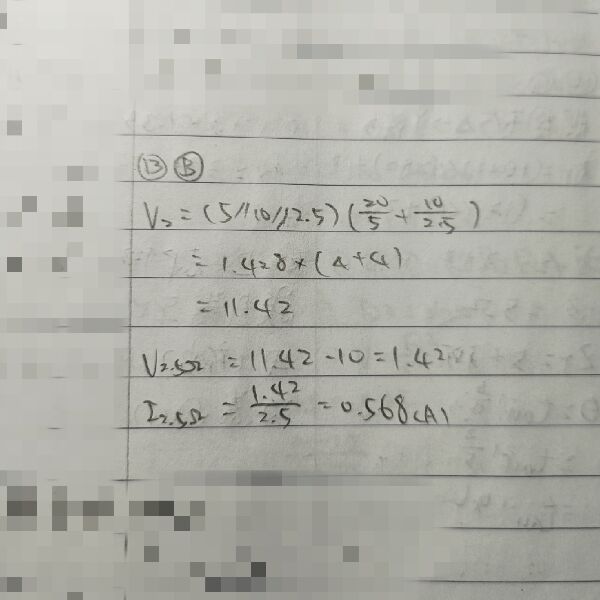 ⑬ Ⓑ
V₂ = (5//10//2.5) (20/5 + 10/2.5)
= 1.428 × (4+4)
= 11.42
V₂.₅Ω = 11.42 - 10 = 1.42
I₂.₅Ω = 1.42/2.5 = 0.568 (A)